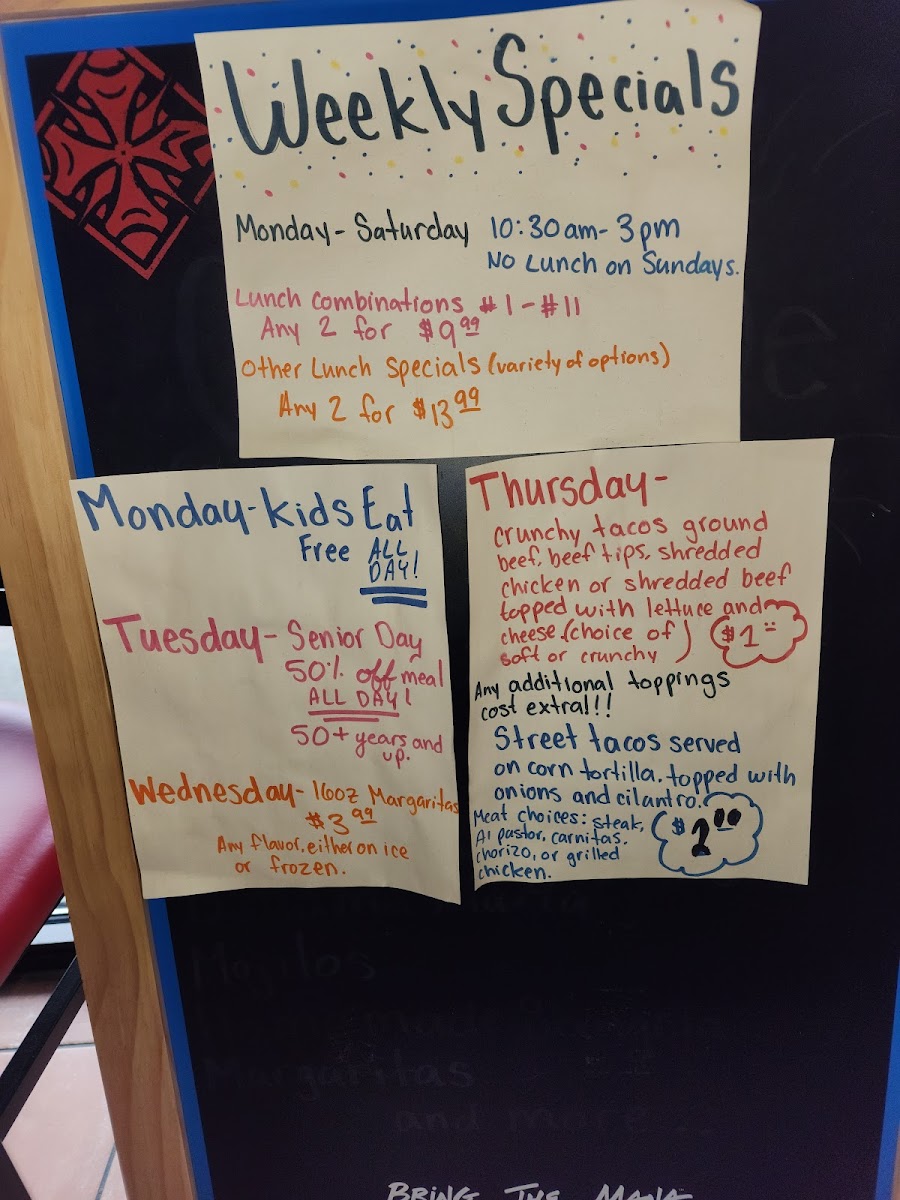 Weekly Specials
Monday - Saturday 10:30am - 3pm
No Lunch on Sundays.
Lunch combinations #1 - #11
Any 2 for $9.99
Other Lunch Specials (variety of options)
Any 2 for $13.99
Monday - Kids Eat
Free ALL
DAY!
Tuesday - Senior Day
50% off meal
ALL DAY!
50+ years and
up.
Wednesday - 16oz Margaritas
$3.99
Any flavor, either on ice
or frozen.
Thursday -
crunchy tacos ground
beef, beef tips, shredded
chicken or shredded beef
topped with lettuce and
cheese. (choice of
soft or crunchy)
$1
Any additional toppings
cost extra!!!
Street tacos served
on corn tortilla, topped with
onions and cilantro.
Meat choices: steak,
Al pastor, carnitas,
chorizo, or grilled
chicken.
$2.00
Mojitos
Margaritas
and more
BRING THE